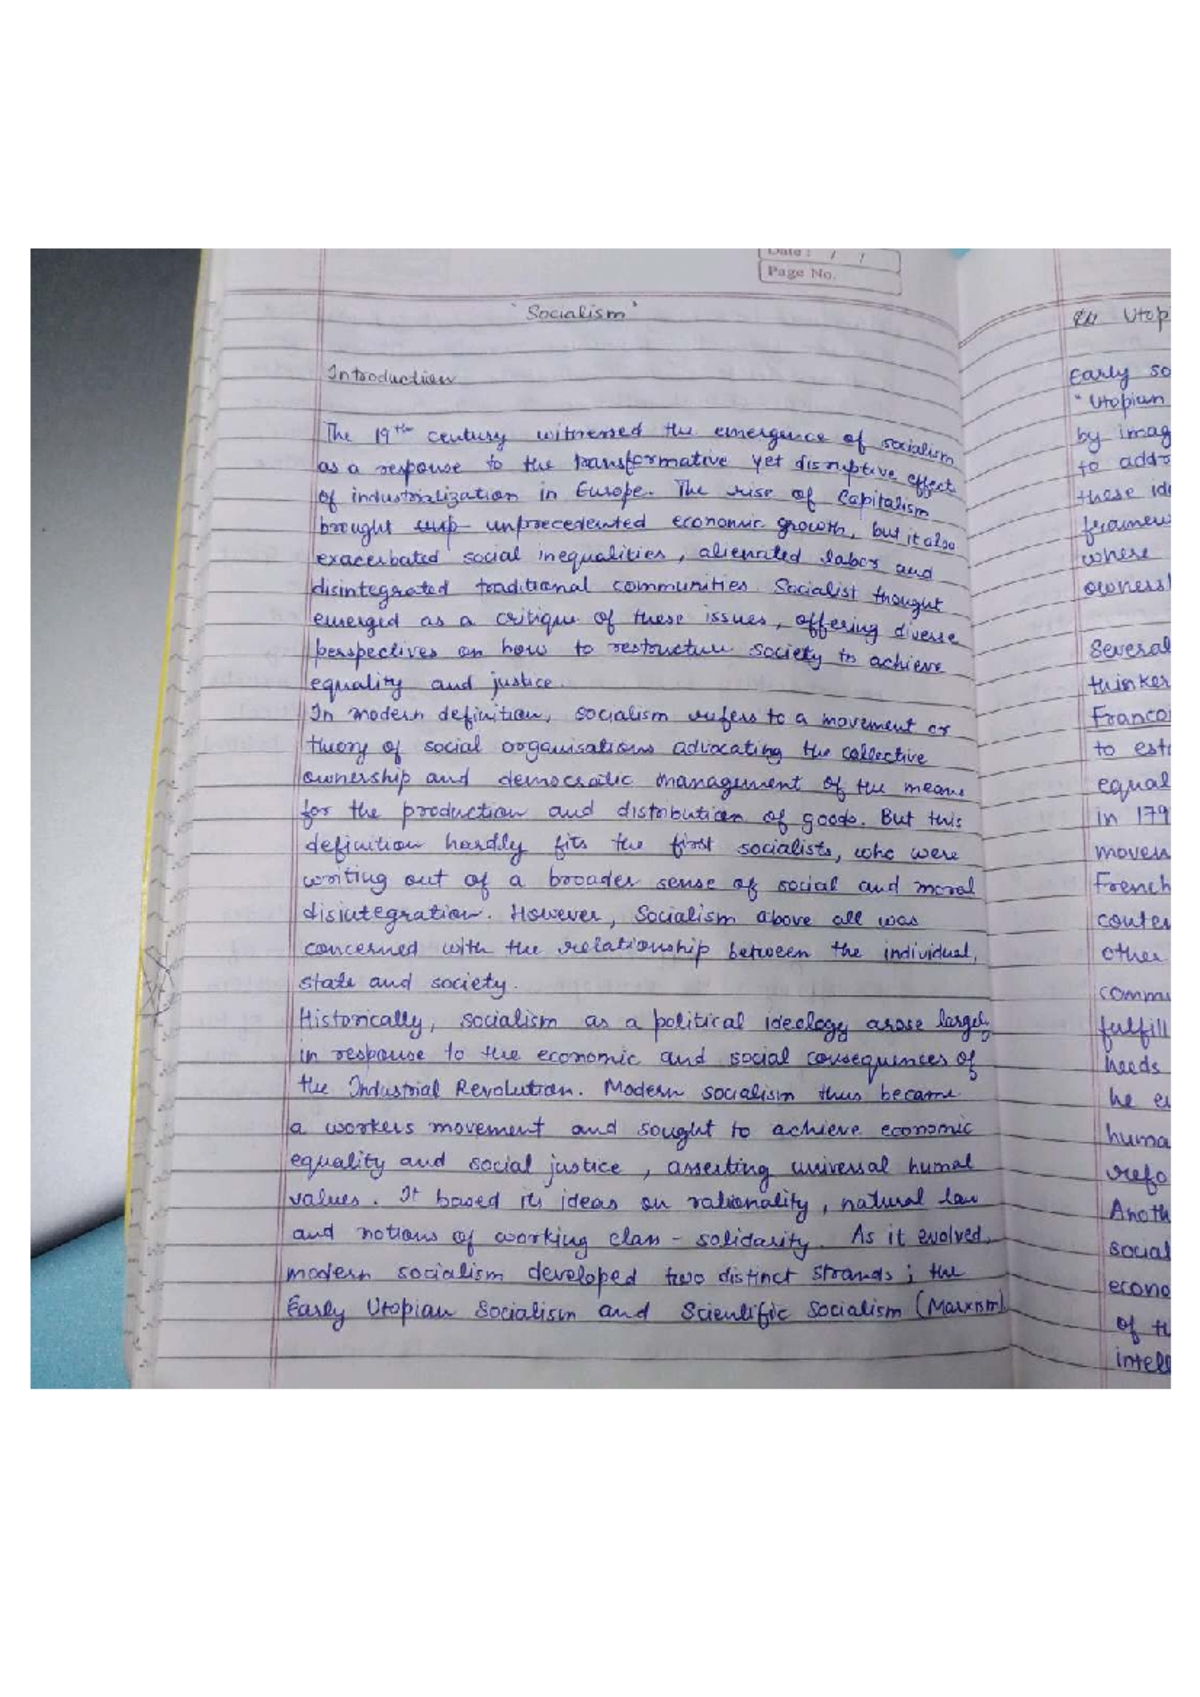 Date : / /
Page No.
'Socialism'
Introduction
The 19th century witnessed the emergence of socialism
as a response to the transformative yet disruptive effect
of industrialization in Europe. The rise of Capitalism
brought unprecedented economic growth, but it also
exacerbated social inequalities, alienated labor and
disintegrated traditional communities. Socialist thought
emerged as a critique of these issues, offering diverse
perspectives on how to restructure society to achieve
equality and justice.
In modern definition, socialism refers to a movement or
theory of social organisations advocating the collective
ownership and democratic management of the means
for the production and distribution of goods. But this
definition hardly fits the first socialists, who were
writing out of a broader sense of social and moral
disintegration. However, Socialism above all was
concerned with the relationship between the individual,
state and society.
Historically, socialism as a political ideology arose largely
in response to the economic and social consequences of
the Industrial Revolution. Modern socialism thus became
a workers movement and sought to achieve economic
equality and social justice, asserting universal humal
values. It based its ideas on rationality, natural law
and notions of working class - solidarity. As it evolved,
modern socialism developed two distinct strands; the
Early Utopian Socialism and Scientific Socialism (Marxism)
Utop
Early so
"Utopian
by imag
to addr
these ide
framew
where
owners
Several
thinker
Franco
to esta
equal
in 179
movem
French
conten
other
commu
fulfill
needs
he e
huma
refo
Anoth
social
econo
of th
intell